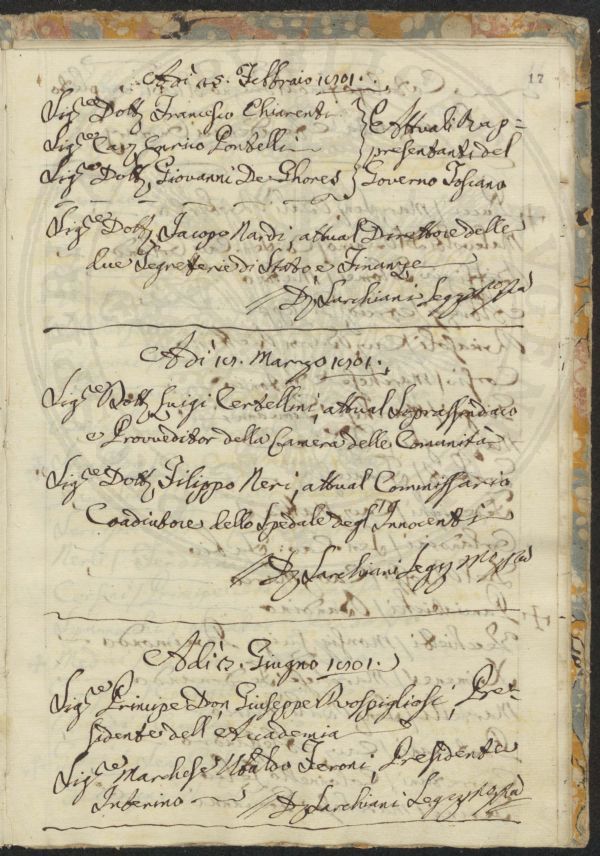 17
Adì 15. Febbraio 1801.
Sig.re Dott. Francesco Chiarenti
Sig.re Cav. Enrico Pontelli
Sig.re Dott. Giovanni De Ghores
Attuali Rap=
presentanti del
Governo Toscano
Sig.re Dott. Jacopo Nardi, attual Direttore delle
due Segreterie di Stato e Finanze
Larchiani Seg.
Adì 11. Marzo 1801.
Sig.re Dott. Luigi Tertellini, attual Soprassindaco
e Provveditor della Camera delle Comunità
Sig.re Dott. Filippo Neri, attual Commissario
Coadiutore dello Spedale degl'Innocenti
Larchiani Seg.
Adì 2. Giugno 1801.
Sig.re Principe Don Giuseppe Rospigliosi, Pre=
sidente dell'Accademia
Sig.re Marchese Ubaldo Feroni, Presidente
Interino
Larchiani Seg.